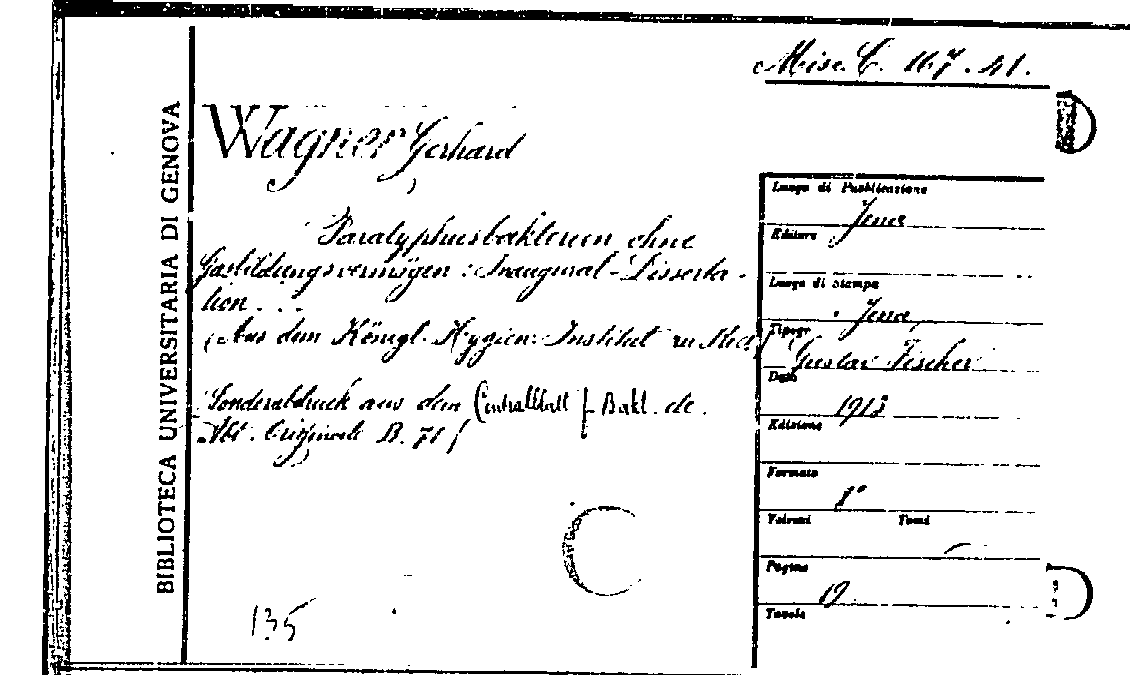 Misc. C. 167. 41.
BIBLIOTECA UNIVERSITARIA DI GENOVA
Wagner Gerhard
Paratyphusbakterien ohne
Gasbildungsvermögen : Inaugural-Disserta-
tion...
(Aus dem Königl. Hygien: Institut zu
Sonderabdruck aus dem Centralblatt f. Bakt. etc.
Abt. Originale B. 71)
135
Luogo di Pubblicazione
Jena
Editore
Luogo di Stampa
Jena
Tipogr.
Gustav Fischer
Data
1913
Edizione
Formato
8°
Volumi Tomi
Pagine
19
Tavole